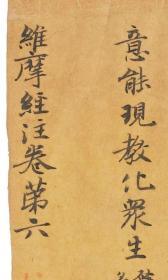 意能現教化衆生
維摩經注卷第六